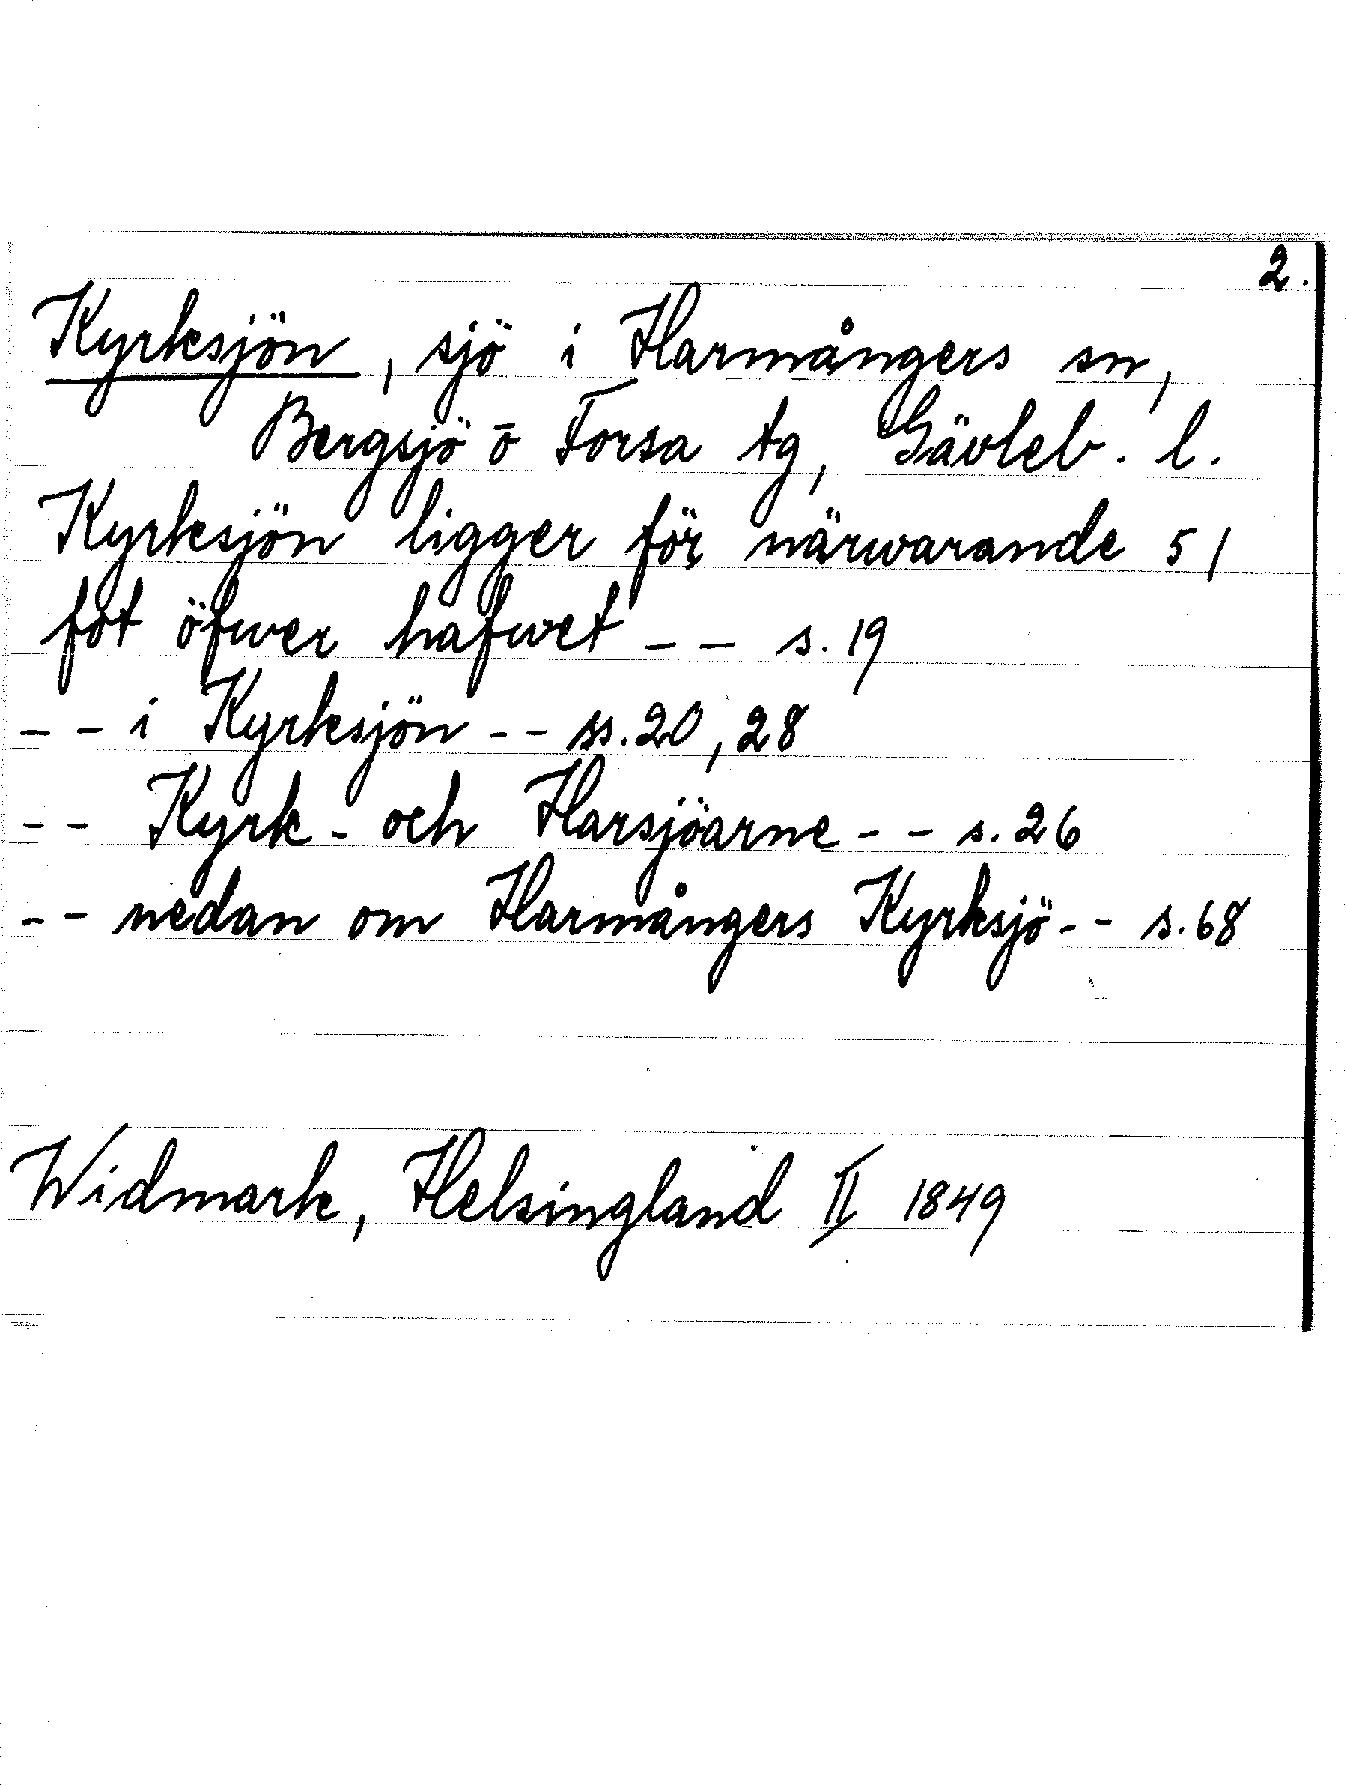 2.
Kyrksjön, sjö i Harmångers sn,
Bergsjö o Forsa tg, Gävleb. l.
Kyrksjön ligger för närwarande 51
fot öfwer hafwet -- s. 19
-- i Kyrksjön -- ss. 20, 28
-- Kyrk- och Harsjöarne -- s. 26
-- nedan om Harmångers Kyrksjö -- s. 68
Widmark, Helsingland II 1849